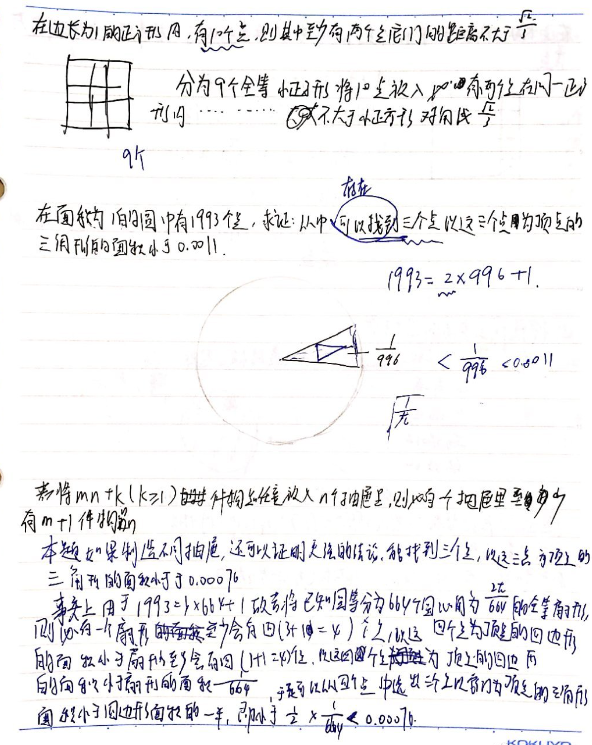 在边长为1的正方形内,有10个点,则其中至少有两个点它们的距离不大于 √2/3
分为9个全等 小正方形 将10点放入 有两个点在同一正方
形内 ………… 不大于小正方形 对角线 √2/3
9个
存在
在面积为1的圆中有1993个点,求证:从中可以找到三个点 以这三个点为顶点的
三角形的面积小于0.0011.
1993=2×996+1.
1/996 < 1/996 <0.0011
√1/π
若将mn+k(k≥1) 件物品任意放入n个抽屉里,则必有一个抽屉里至少
有m+1件物品
本题如果制造不同抽屉,还可以证明 的结论,能找到三个点,以这三点为顶点的
三角形的面积小于0.00076
事实上由于1993=3×664+1 故若将已知圆等分为664个圆心角为 2π/664 的全等扇形,
则必有一个扇形 至少含有四(3+1=4)个点,以这四个点为顶点的四边形
的面积小于扇形至少含有四(1+1=4)点,以这四个点 为顶点的四边形
的面积小于扇形的面积 1/664 ,于是可以从四个点中选出三个点以它们为顶点的三角形
面积小于四边形面积的一半,即小于 1/2 × 1/664 < 0.00076
KOKUYO